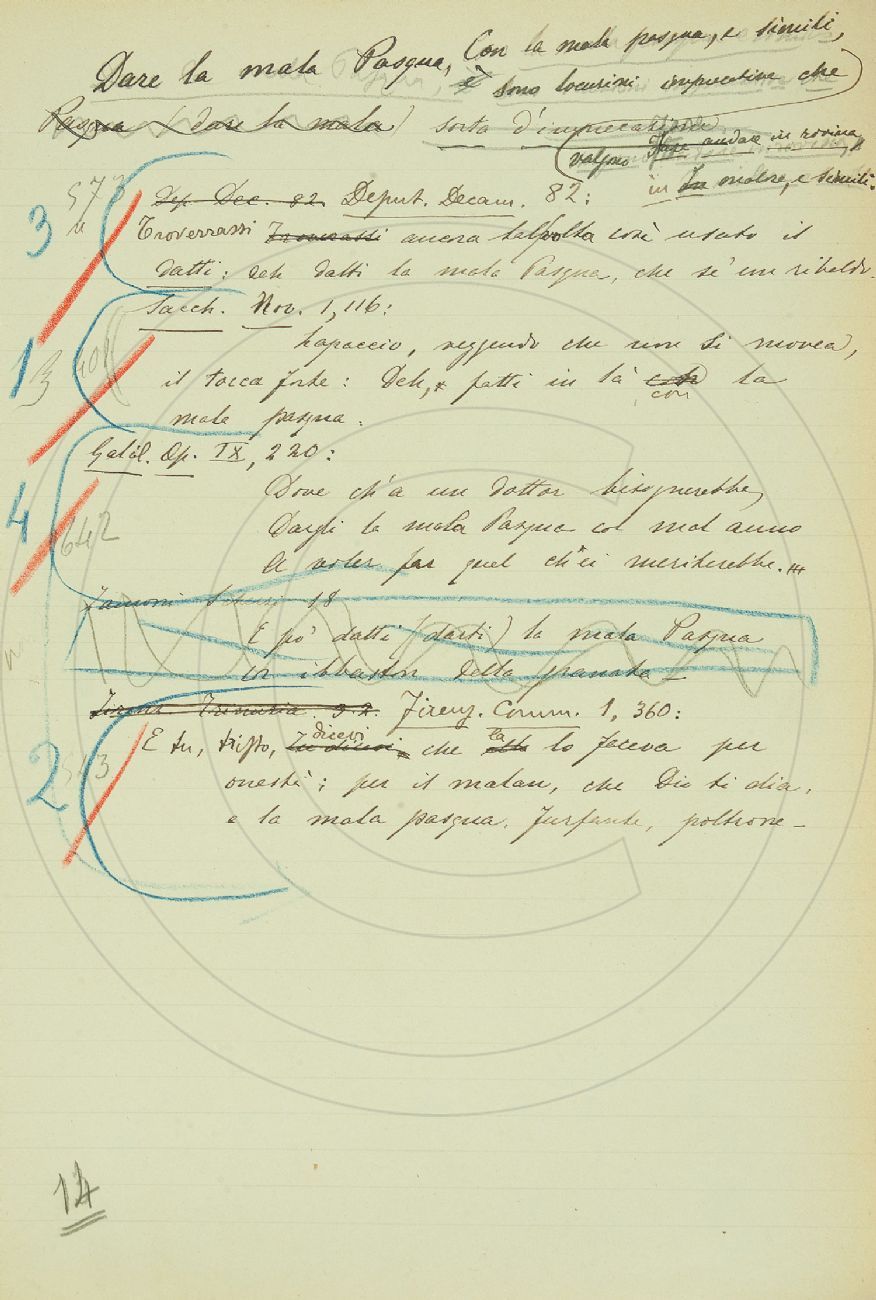 Dare la mala Pasqua, Con la mala pasqua, e simili,
è sono locuzioni imprecative che
Pasqua (dare la mala) sorta d'imprecazione
valgono Fare andare in rovina,
in In malore, e simili.
573
3
Dep. Dec. 82 Deput. Decam. 82:
Troverrassi Troverassi ancora talvolta così usato il
datti: deh datti la mala Pasqua, che se' un ribaldo.
Sacch. Nov. 1, 116:
1
Lapaccio, veggendo che non si movea,
il tocca forte: Deh, fatti in là con la
con
mala pasqua.
Galil. Op. IX, 220:
4
Dove ch'a un dottor bisognerebbe
642
Dargli la mala Pasqua col mal anno
A voler far quel ch'ei meriterebbe.
Zannoni Scherzi 18
E po' datti (darti) la mala Pasqua
Firenz. Trinuzia 32. Firenz. Comm. 1, 360:
dicevi la
2
E tu, tristo, che lo faceva per
onestà; per il malan, che Dio ti dia,
e la mala pasqua. Furfante, poltrone
14